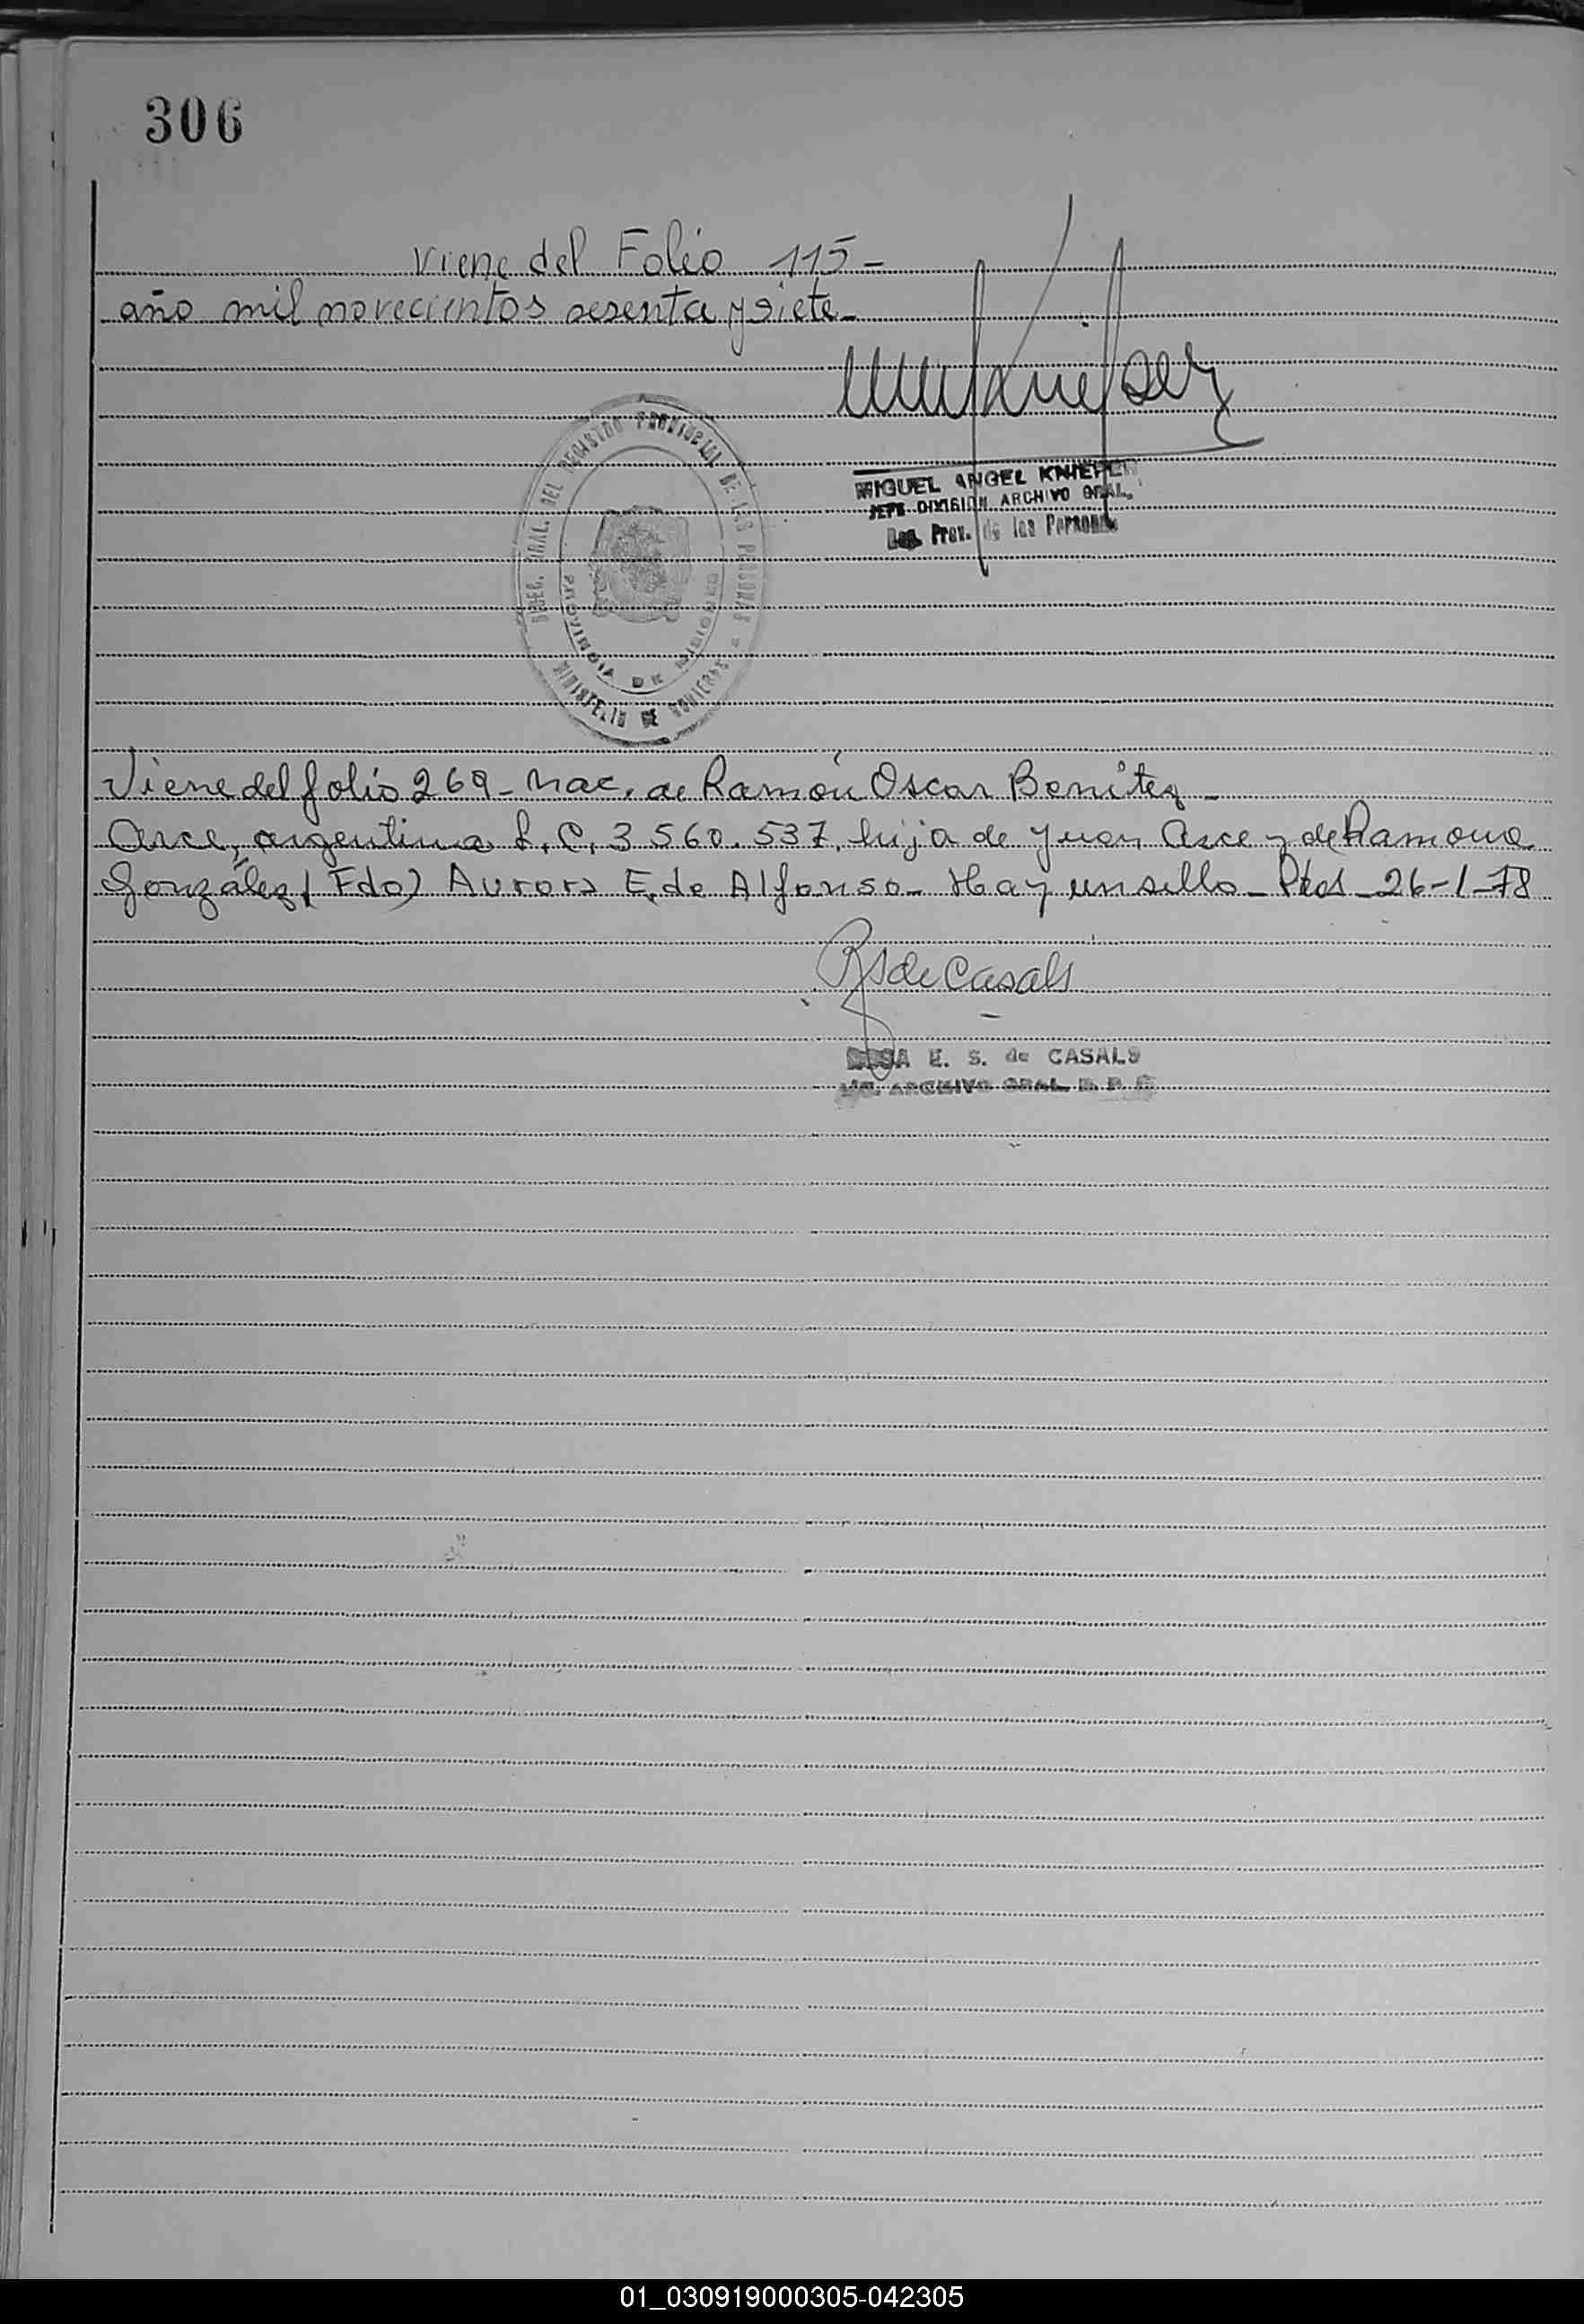 306
Viene del Folio 115-
año mil novecientos sesenta y siete-
MIGUEL ANGEL KNIEPER
JEFE DIVISION ARCHIVO GRAL.
Reg. Prov. de las Personas
GRAL. DEL REGISTRO PROVINCIAL DE LAS PERSONAS
PROVINCIA DE MISIONES
MINISTERIO DE GOBIERNO
Viene del folio 269- Nac. de Ramón Oscar Benítez-
Arce, argentina L.C. 3 560.537, hija de Juan Arce y de Ramona
González( Fdo) Aurora E. de Alfonso- Hay un sello- Pdas- 26-1-78
RS de Casals
ROSA E. S. de CASALS
ARCHIVO GRAL. R. P.
01_030919000305-042305